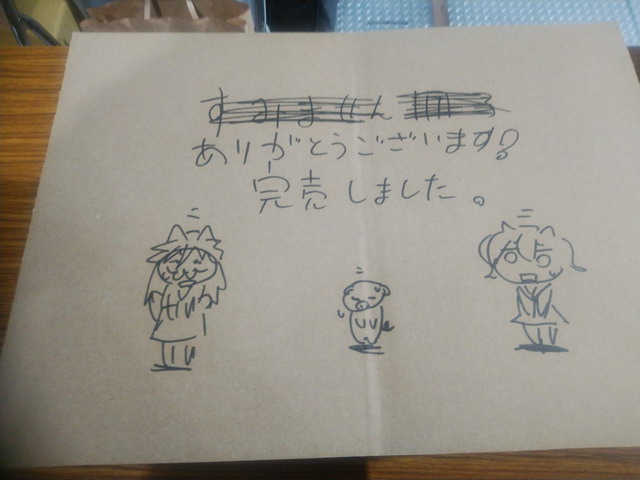 すみません
ありがとうございます!
完売しました。